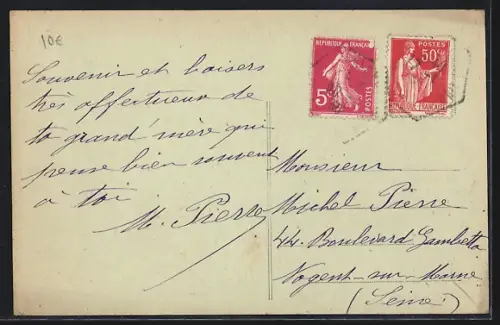 10€
Souvenir et baisers
très affectueux de
ta grand'mère qui
pense bien souvent
à toi
M. Pierre
REPUBLIQUE FRANÇAISE
5c
POSTES
POSTES
50c
REPUBLIQUE FRANÇAISE
Monsieur
Michel Pierre
44 Boulevard Gambetta
Nogent-sur-Marne
(Seine)